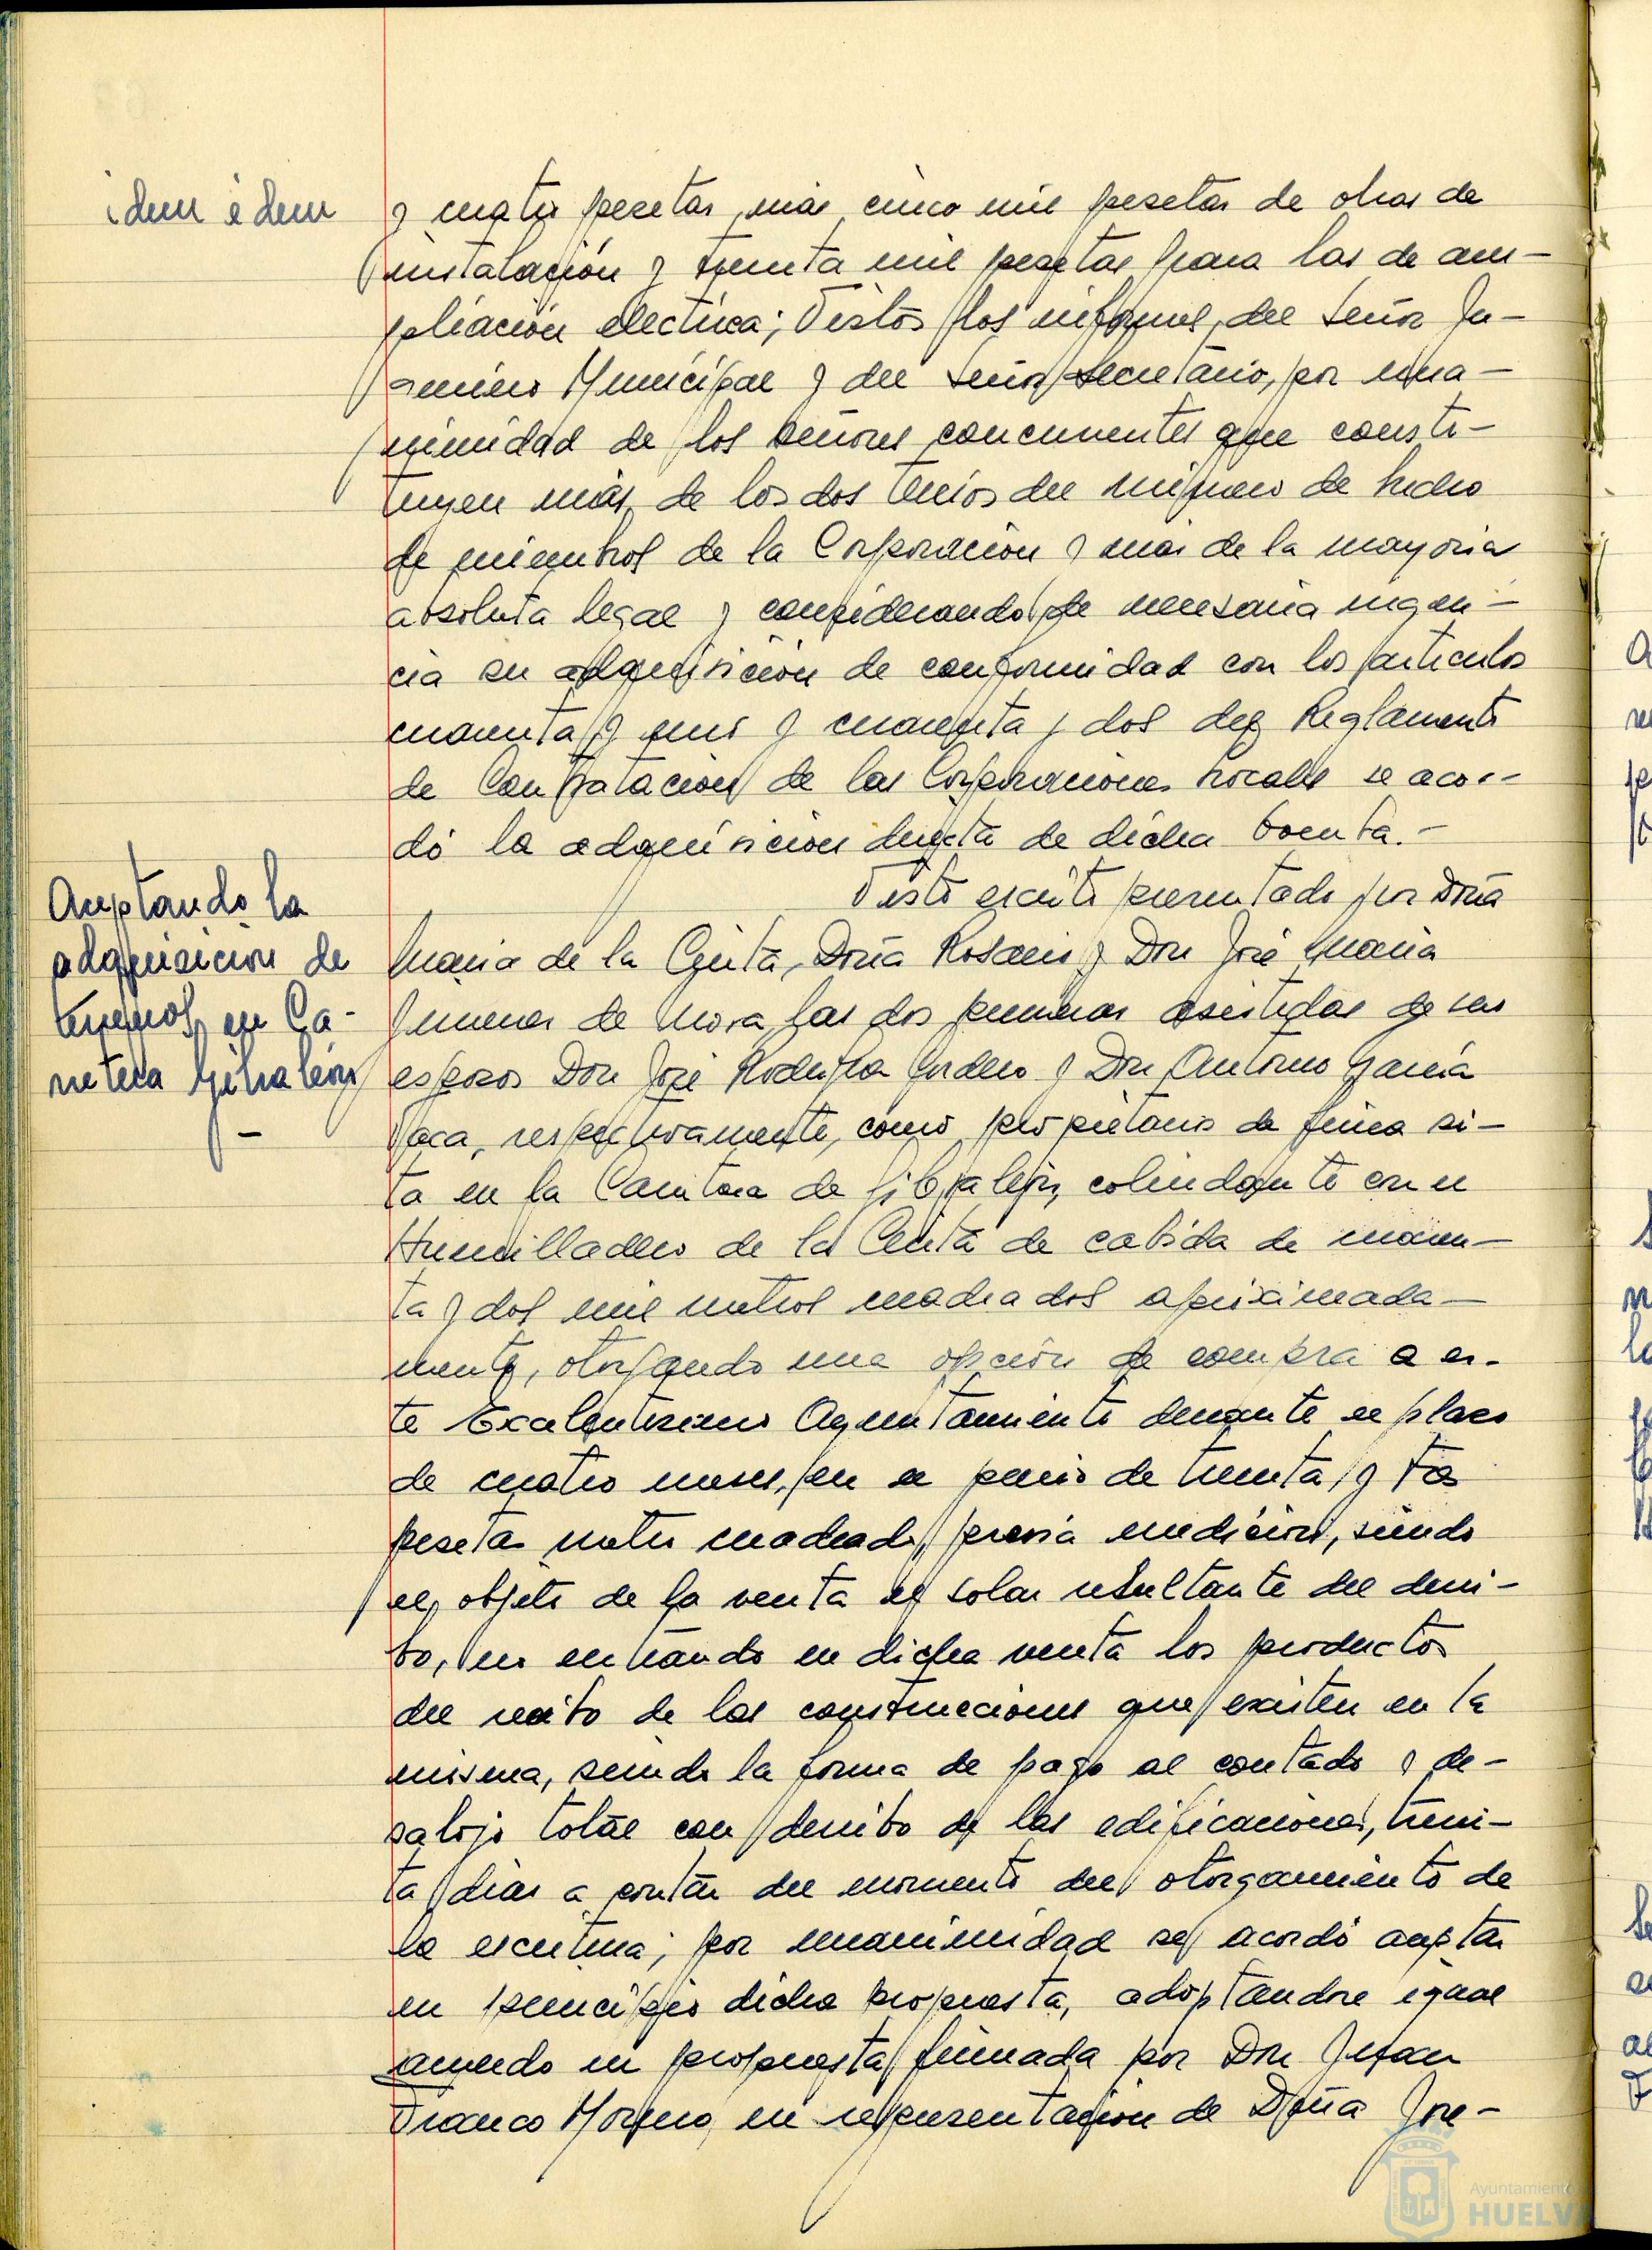 idem idem
y cuatro pesetas, más cinco mil pesetas de obras de
instalación y treinta mil pesetas para las de am-
pliación electrica; Vistos los informes, del Señor In-
geniero Municipal y del Señor Secretario, por una-
nimidad de los señores concurrentes que consti-
tuyen más, de los dos tercios del número de hecho
de miembros de la Corporación y mas de la mayoria
absoluta legal y considerando de necesaria urgen-
cia su adquisición de conformidad con los articulos
cuarenta y uno y cuarenta y dos del Reglamento
de Contratación de las Corporaciones Locales se acor-
dó la adquisición directa de dicha bomba.-
Aceptando la
adquisición de
terrenos en Ca-
rretera Gibraleón
-
Visto escrito presentado por Doña
Maria de la Cinta, Doña Rosario y Don José Maria
Jimenez de Mora, las dos primeras asistidas de sus
esposos Don José Cordero y Don Antonio Garcia
Vaca, respectivamente, como propietarios de finca si-
ta en la Carretera de Gibraleón, colindante con el
Humilladero de la Cinta de cabida de cuaren-
ta y dos mil metros cuadrados aproximada-
mente, otorgando una opción de compra a es-
te Excelentisimo Ayuntamiento durante el plazo
de cuatro meses, en el precio de treinta y tres
pesetas metro cuadrado, previa medición, siendo
el objeto de la venta el solar resultante del derri-
bo, no entrando en dicha venta los productos
del derribo de las construcciones que existen en la
misma, siendo la forma de pago al contado y de-
salojo total con derribo de las edificaciones, trein-
ta dias a contar del momento del otorgamiento de
la escritura; por unanimidad se acordó aceptar
en principio dicha propuesta, adoptandose igual
acuerdo en propuesta firmada por Don Juan
Franco Moreno, en representación de Doña Jose-
Ayuntamiento
HUELVA